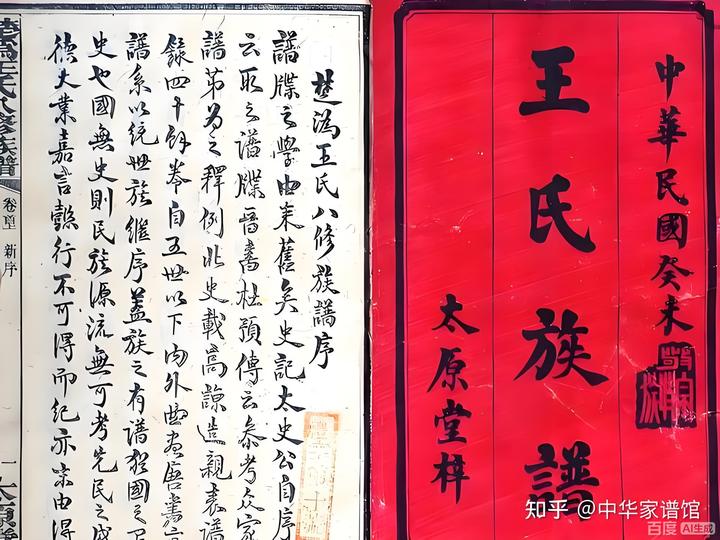 中華民國癸未
王氏族譜
太原堂梓
楚溈王氏八修族譜序
譜牒之學由来舊矣史記太史公自序
云取之譜牒晉書杜預傳云參考众家
譜第为之釋例北史載高諒造親表譜
錄四十餘卷自五世以下內外曲盡唐書
譜系以統世族繼序蓋族之有譜猶國之
史也國無史則民族源流無可考先民之盛
德大業嘉言懿行不可得而紀亦末由得
楚溈王氏八修族譜
卷首
新序
一
太原堂
知乎 @中华家谱馆
百度 AI生成